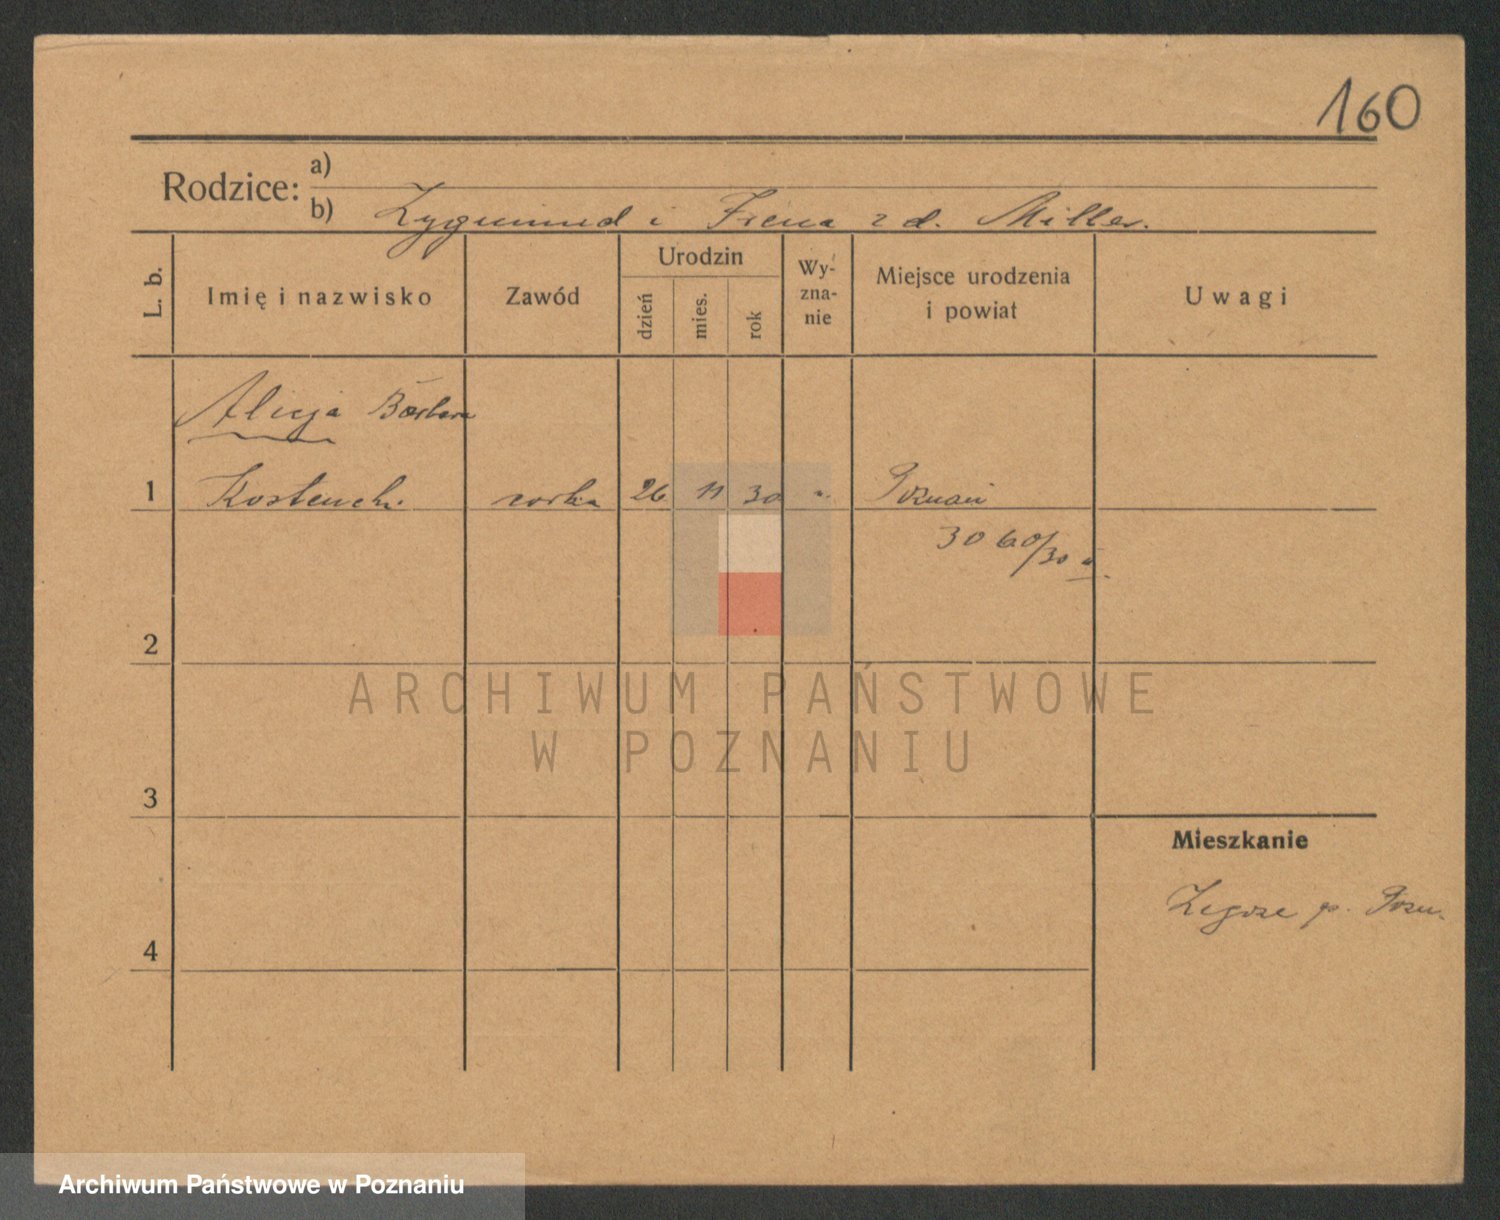 160
Rodzice:
a)
b) Zygmund i Irena z d. Miller.
L. b.
Imię i nazwisko
Zawód
Urodzin
dzień
mies.
rok
Wy-
zna-
nie
Miejsce urodzenia
i powiat
Uwagi
Alicja Barbara
1 córka 26 11 30 " Poznań
3060/30
2
3
4
Mieszkanie
Zegrze p. Pozn.
ARCHIWUM PAŃSTWOWE
W POZNANIU
Archiwum Państwowe w Poznaniu